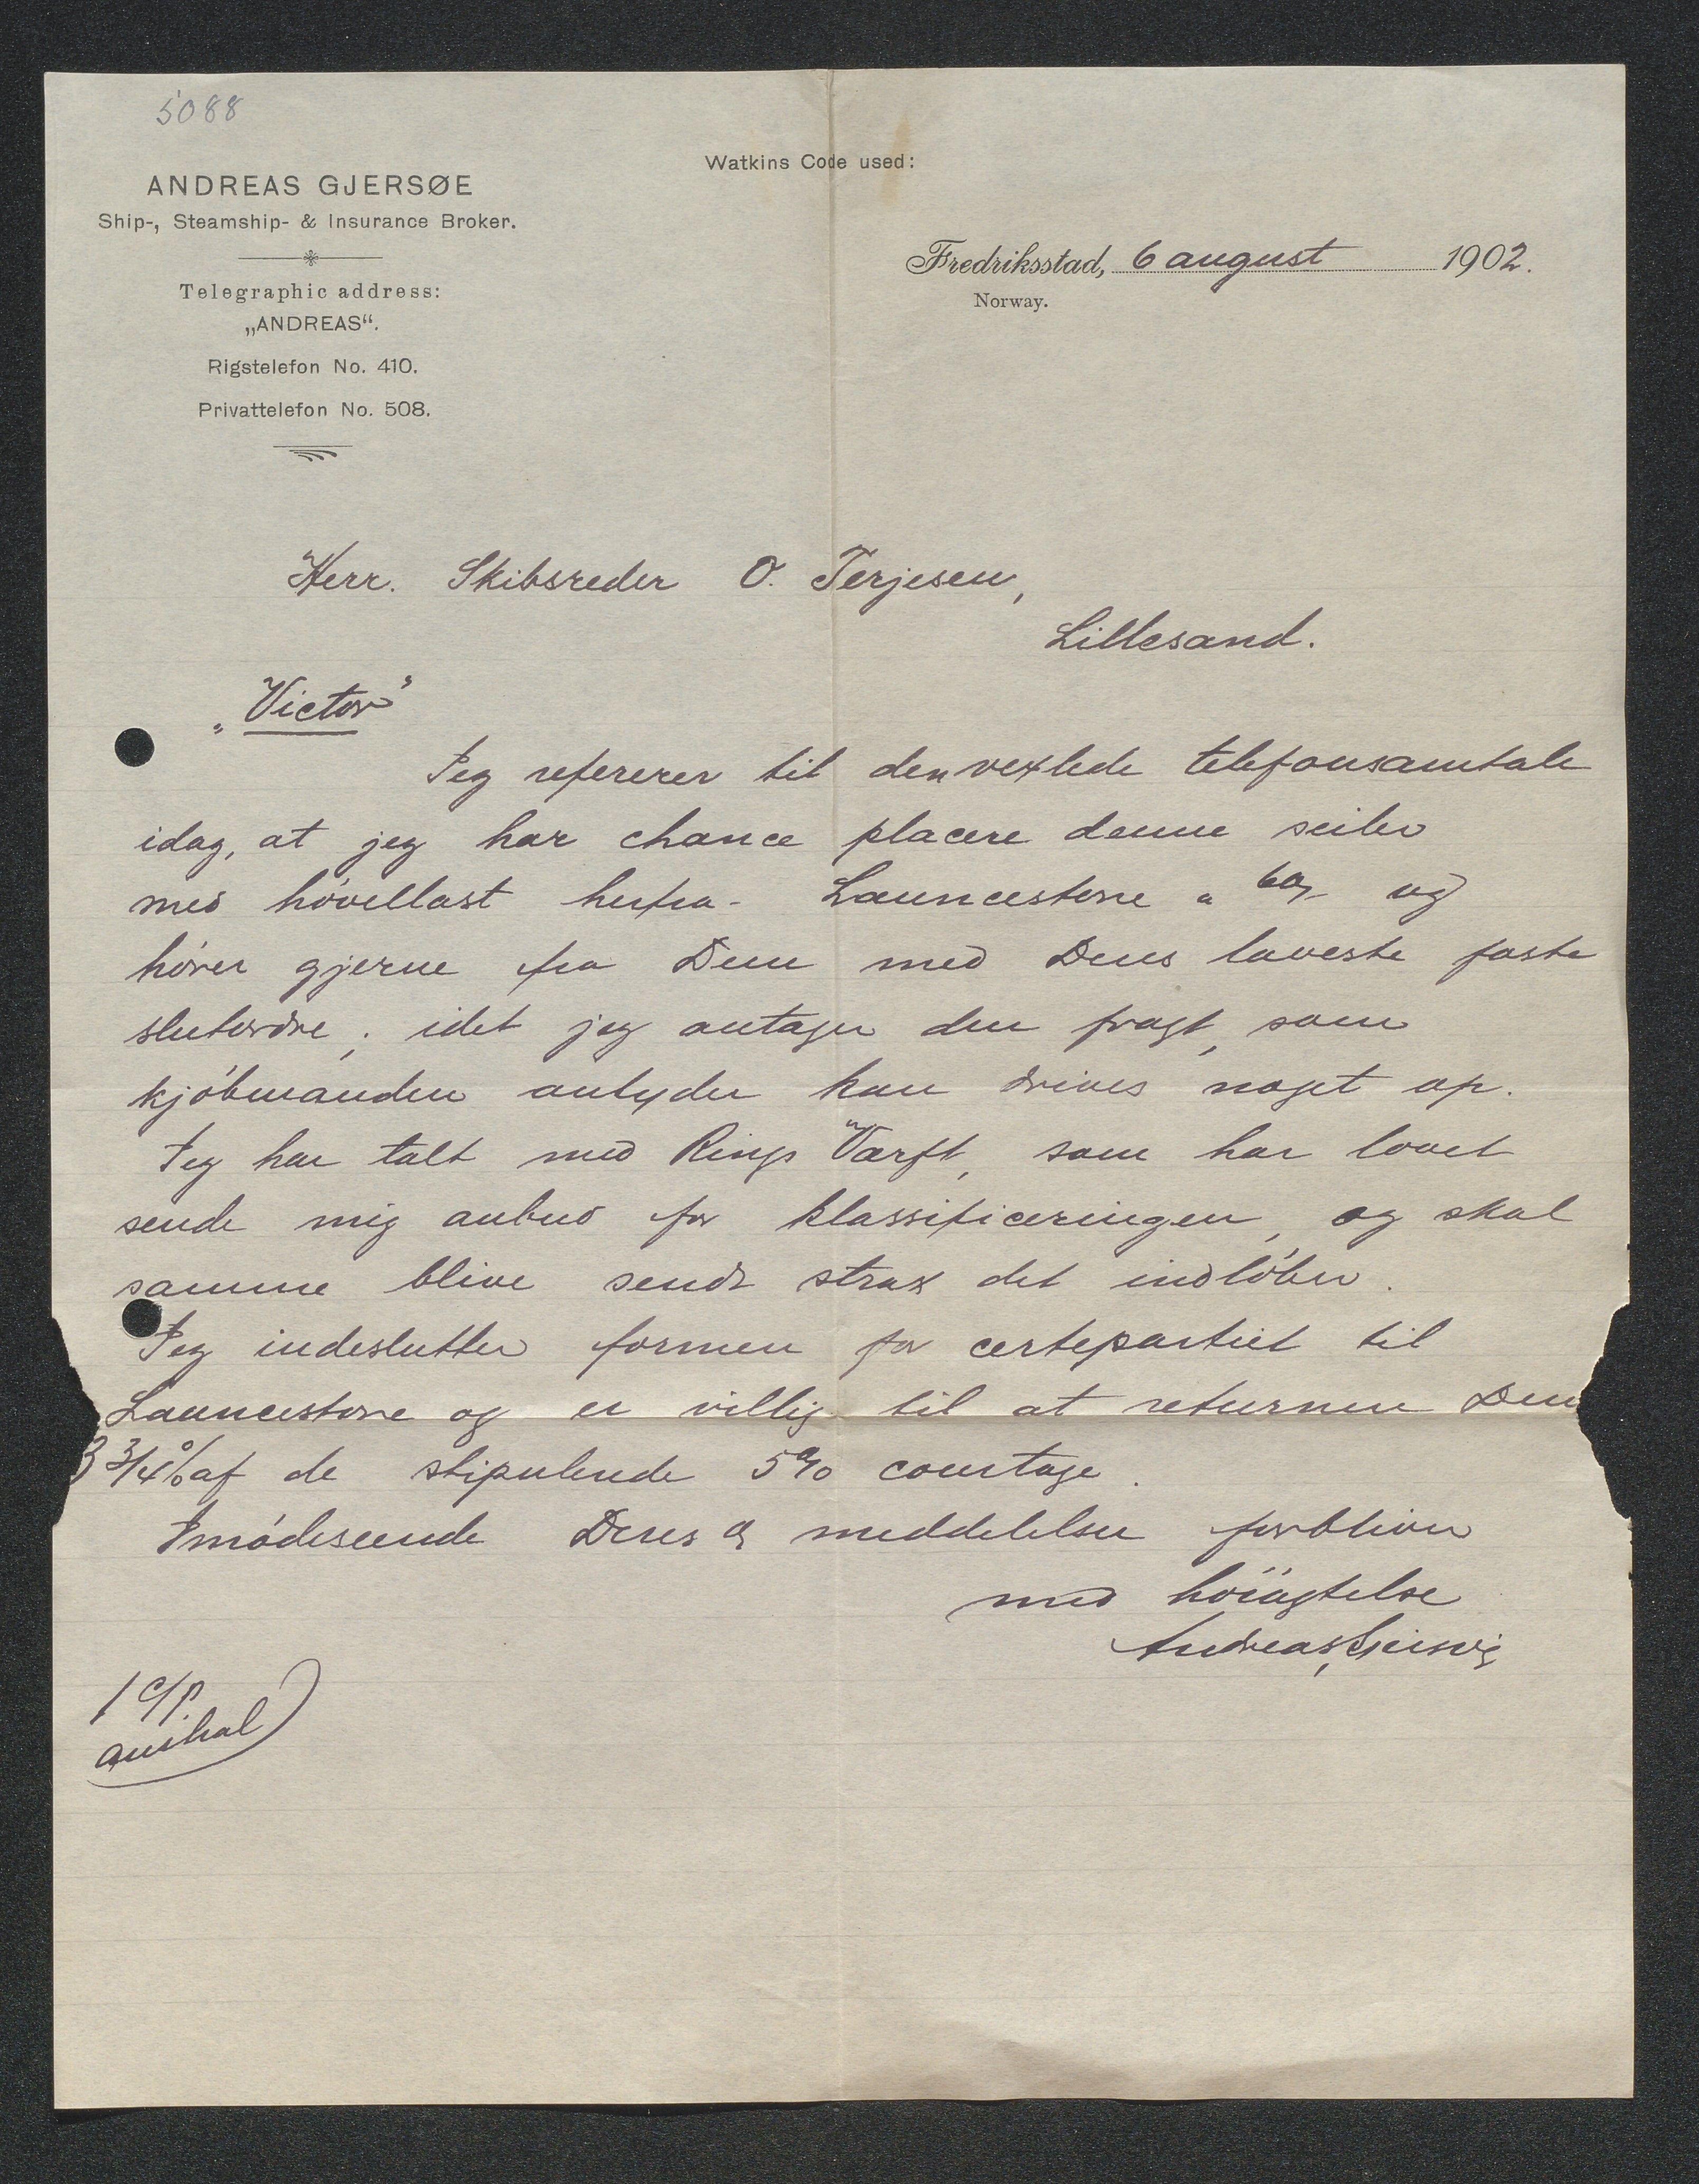 5088
ANDREAS GJERSØE
Ship-, Steamship- & Insurance Broker.
Telegraphic address:
„ANDREAS“.
Rigstelefon No. 410.
Privattelefon No. 508.
Watkins Code used:
Fredriksstad, 6 august 1902.
Norway.
Herr. Skibsreder O. Terjesen,
Lillesand.
„Victor"
Jeg refererer til den vexlede telefonsamtale
idag, at jeg har chance placere denne seiler
med hövellast herfra - Launcestone a 60/- og
hörer gjerne fra Dem med Deres laveste faste
slutordre, idet jeg antager den fragt, som
kjöbmanden antyder kan drives noget op.
Jeg har talt med Rings Värft, som har lovet
sende mig anbud for klassificeringen, og skal
samme blive sendt strax det indlöber.
Jeg indeslutter formen for certepartiet til
Launcestone og er villig til at returnere Dem
3 3/4 % af de stipulerede 5 % courtage.
Imödeseende Deres meddelelser forbliver
med höiagtelse
Andreas Gjersøe
1 c/p.